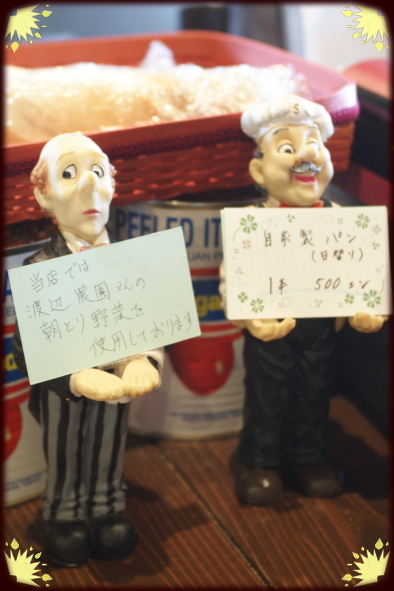 当店では
渡辺農園さんの
朝とり野菜を
使用しております
自家製パン
(日替り)
1本 500エン
PEELED IT
S